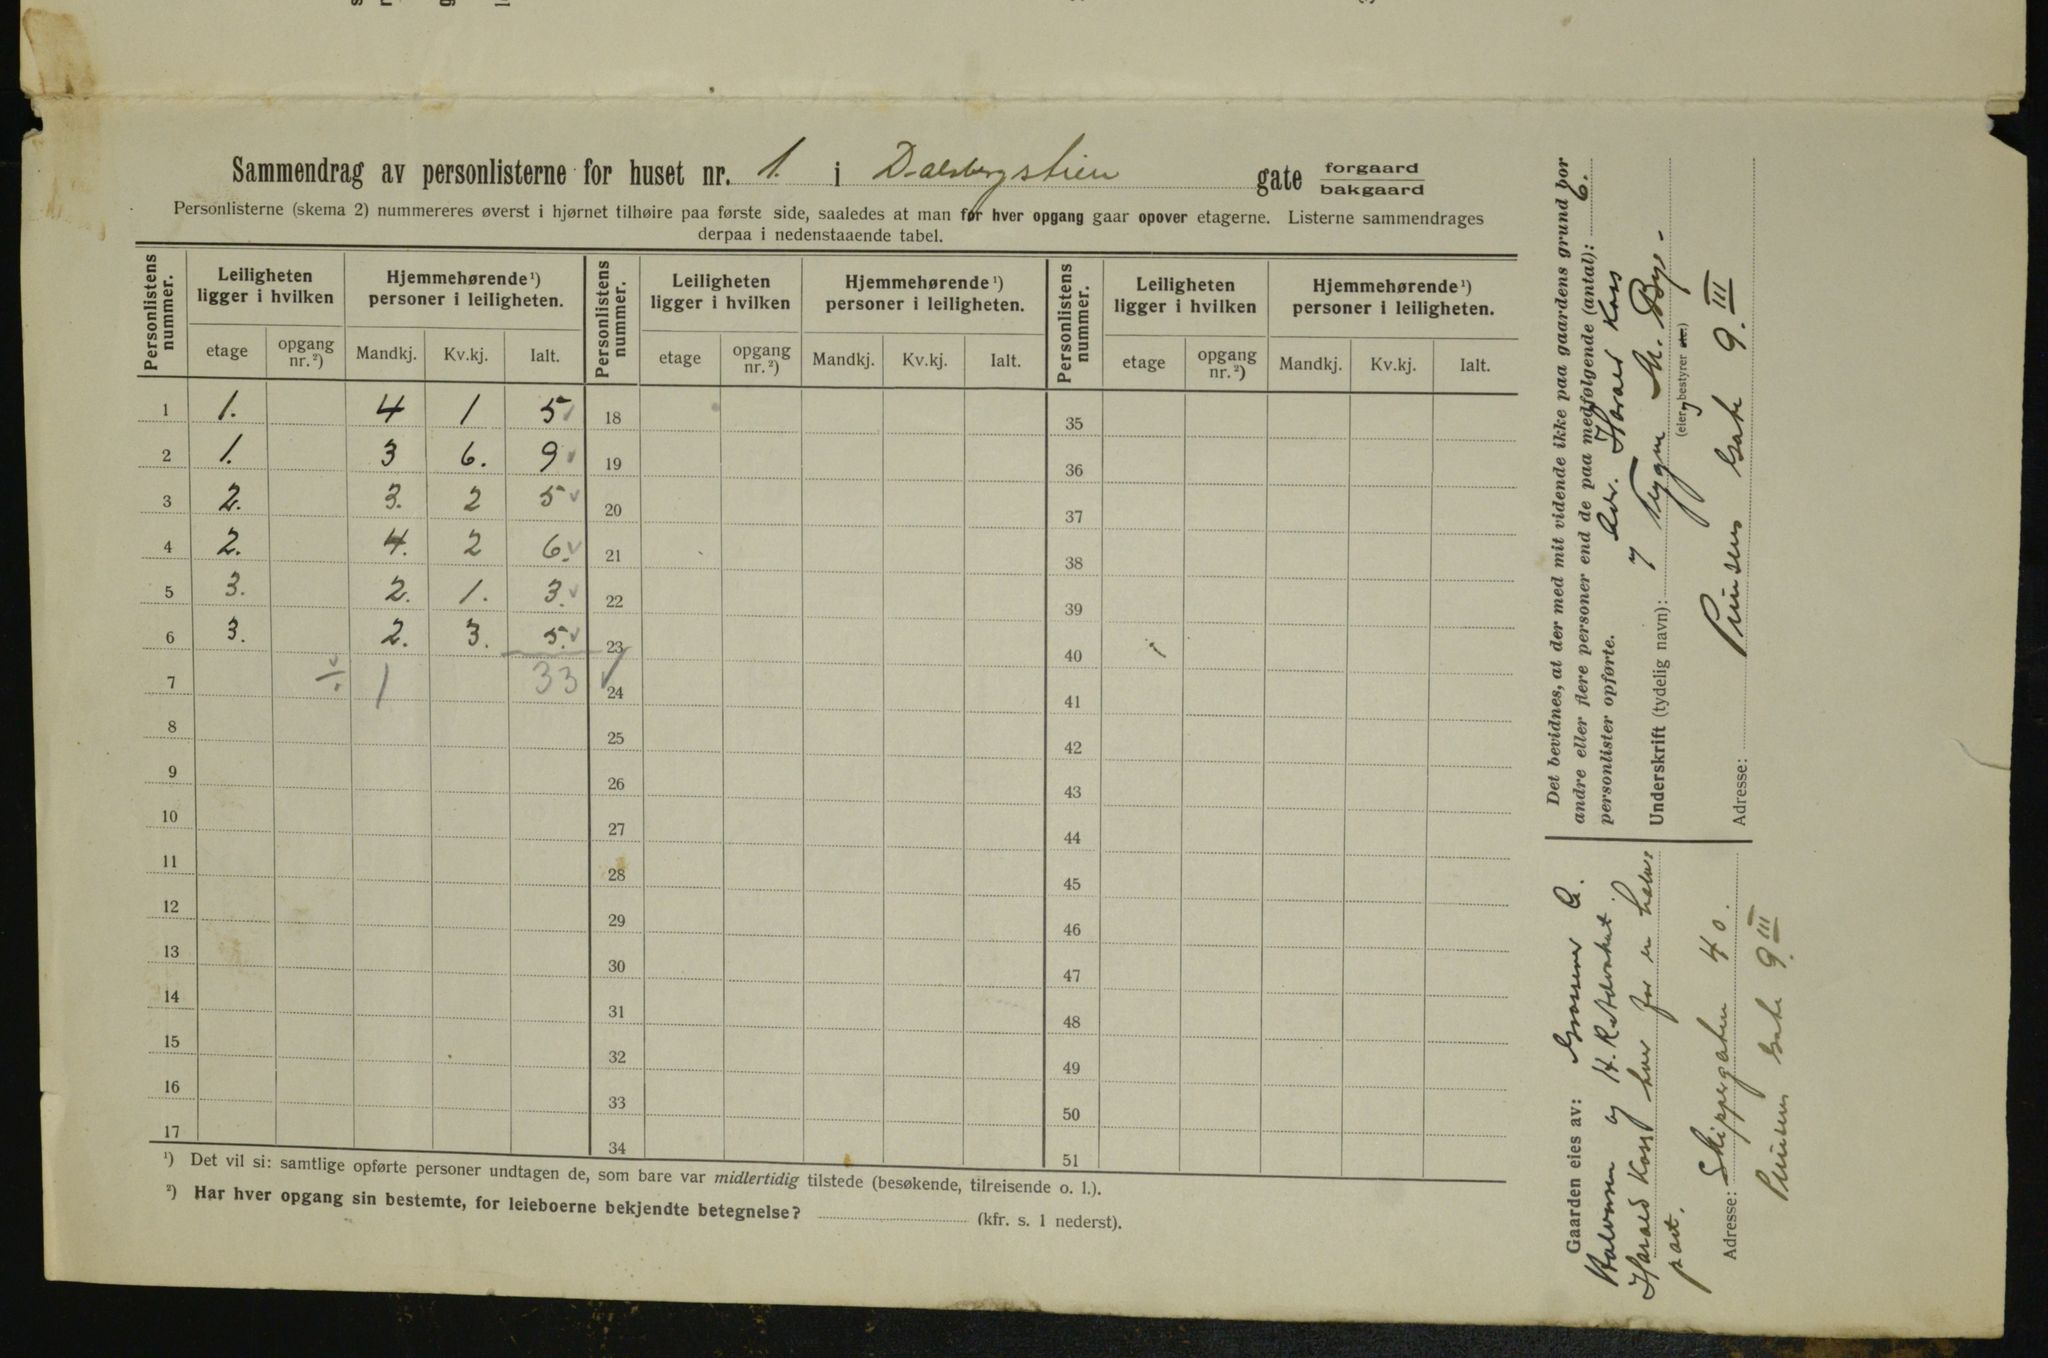 Sammendrag av personlisterne for huset nr. 1. i Dalsbergstien gate forgaard bakgaard
Personlisterne (skema 2) nummereres øverst i hjørnet tilhøire paa første side, saaledes at man før hver opgang gaar opover etagerne. Listerne sammendrages
derpaa i nedenstaaende tabel.
Personlistens nummer. Leiligheten ligger i hvilken Hjemmehørende ¹) personer i leiligheten. Personlistens nummer. Leiligheten ligger i hvilken Hjemmehørende ¹) personer i leiligheten. Personlistens nummer. Leiligheten ligger i hvilken Hjemmehørende ¹) personer i leiligheten.
etage opgang nr. ²) Mandkj. Kv.kj. Ialt. etage opgang nr. ²) Mandkj. Kv.kj. Ialt. etage opgang nr. ²) Mandkj. Kv.kj. Ialt.
1 1. 4 1 5 18 35
2 1. 3 6. 9 19 36
3 2. 3. 2 5 20 37
4 2. 4. 2 6. 21 38
5 3. 2. 1. 3. 22 39
6 3. 2. 3. 5. 23 40
7 ÷ 1 33 24 41
8 25 42
9 26 43
10 27 44
11 28 45
12 29 46
13 30 47
14 31 48
15 32 49
16 33 50
17 34 51
¹) Det vil si: samtlige opførte personer undtagen de, som bare var midlertidig tilstede (besøkende, tilreisende o. l.).
²) Har hver opgang sin bestemte, for leieboerne bekjendte betegnelse? (kfr. s. 1 nederst).
Det bevidnes, at der med mit vidende ikke paa gaardens grund bor
andre eller flere personer end de paa medfølgende (antal): 6.
personlister opførte.
Adv. Harald Koss
Underskrift (tydelig navn): M. Bye
(eier, bestyrer etc.)
Adresse: Prinsens Gate 9. III
Gaarden eies av:
Halvorsen og H.R. Advokat
Harald Koss hver for en halv
part.
Adresse: Skippergaten 40.
Prinsens Gate 9. III